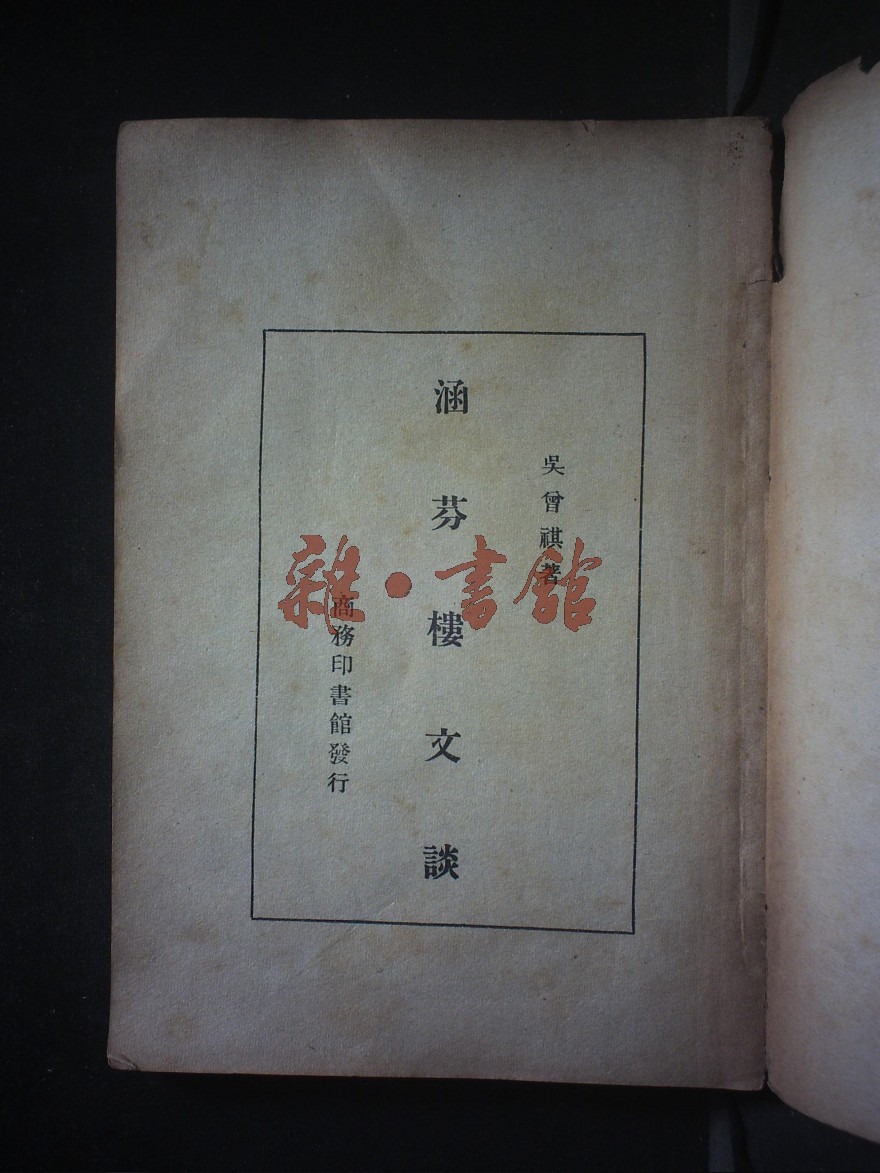 吳曾祺著
涵芬樓文談
商務印書館發行
雜·書館